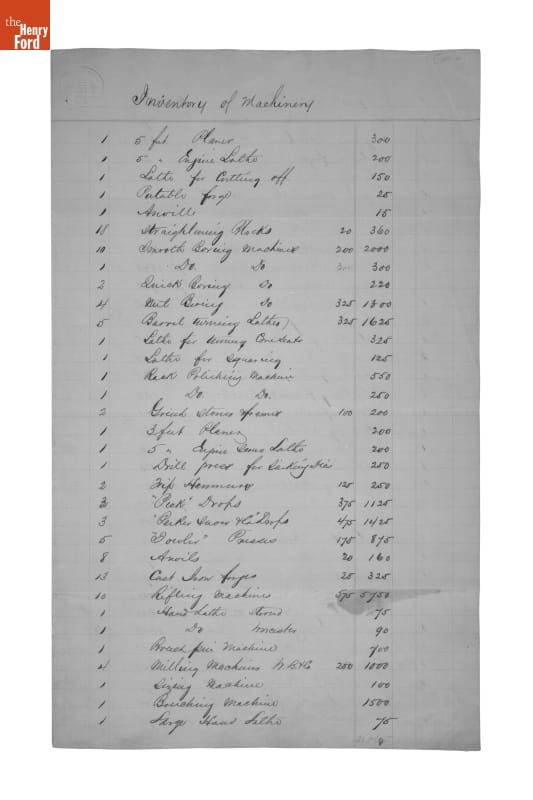 the
Henry
Ford
Inventory of Machinery
1 5 feet Planer 300
1 5 " Engine Lathe 200
1 Lathe for Cutting off 150
1 Potable forge 25
1 Anville 15
18 Straightening Blocks 20 360
10 Smooth Boring Machines 200 2000
1 Do. Do 300 300
2 Quick Boring Do 220
4 Nut Boring Do 325 1300
5 Barrel turning Lathes 325 1625
1 Lathe for turning 325
1 Lathe for Squaring 125
1 Rack Polishing Machine 550
1 Do. Do. 250
2 Grind Stones & frames 100 200
1 3 feet Planer 200
1 5 " Engine Screw Lathe 200
1 Drill press for Sinking Dies 250
2 Trip Hammers 125 250
3 "Peck" Drops 375 1125
3 "Parker Snow & Co" Drops 475 1425
5 "Fowler" Presses 175 875
8 Anvils 20 160
13 Cast Iron forges 25 325
10 Rifling Machines 575 5750
1 Hand Lathe 75
1 Do Worcester 90
1 Machine 700
4 Milling Machines 250 1000
1 Sizing Machine 100
1 Broaching Machine 1500
1 Large Hand Lathe 75